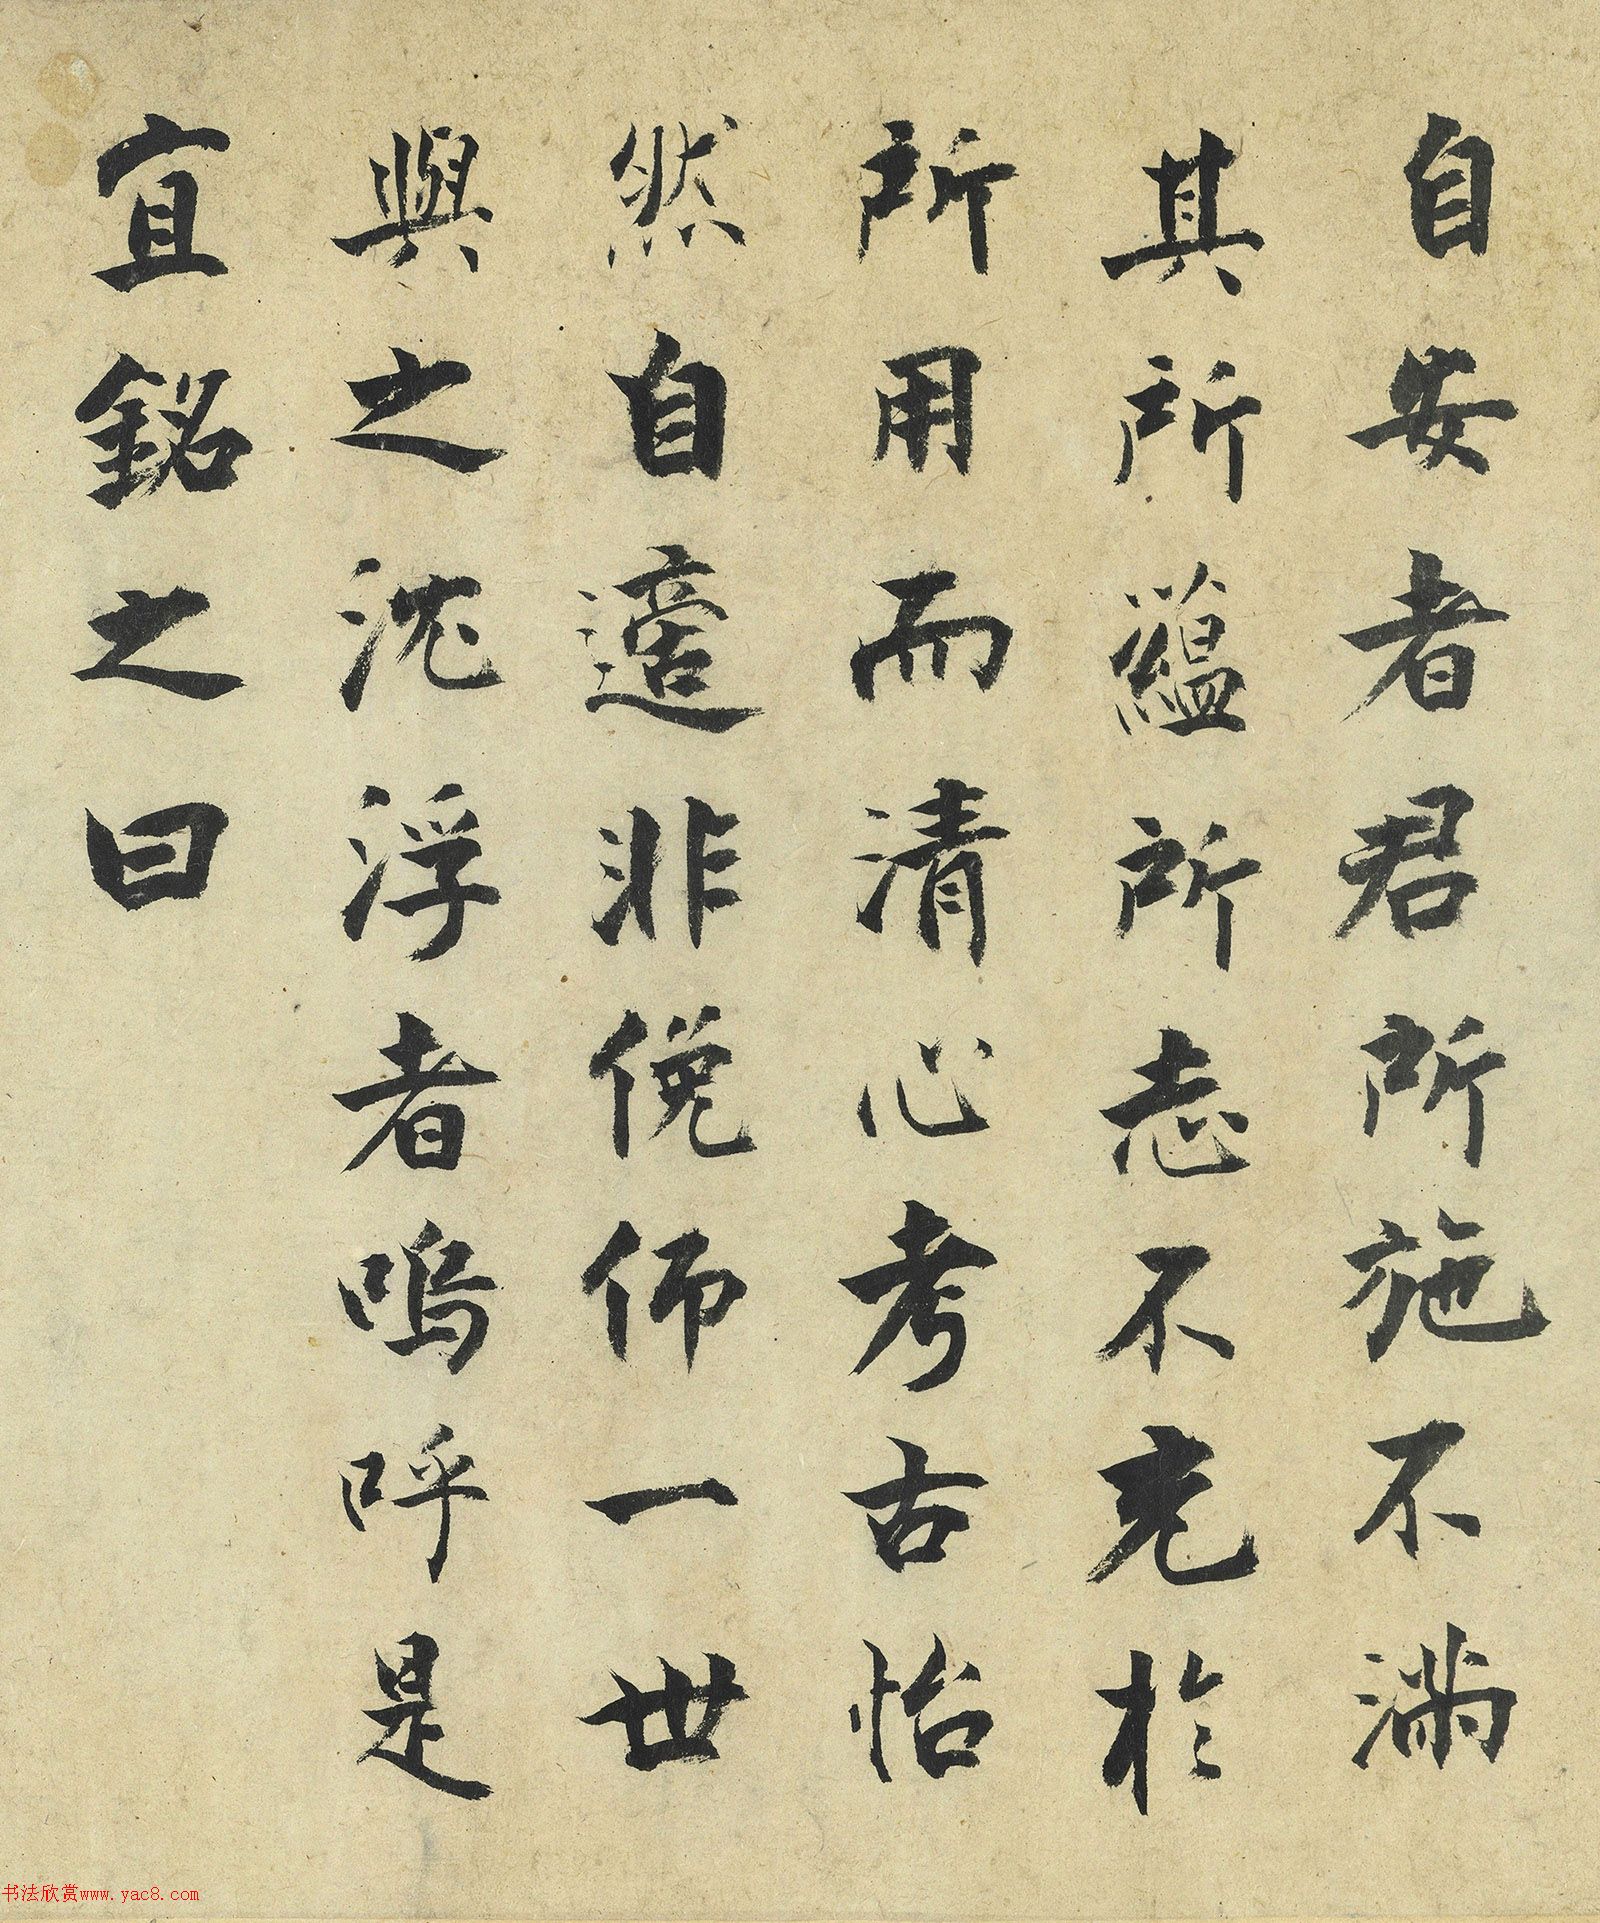 自安者君所施不滿
其所蘊所志不充於
所用而清心考古怡
然自適非俛仰一世
與之沈浮者嗚呼是
宜銘之曰
书法欣赏www.yac8.com